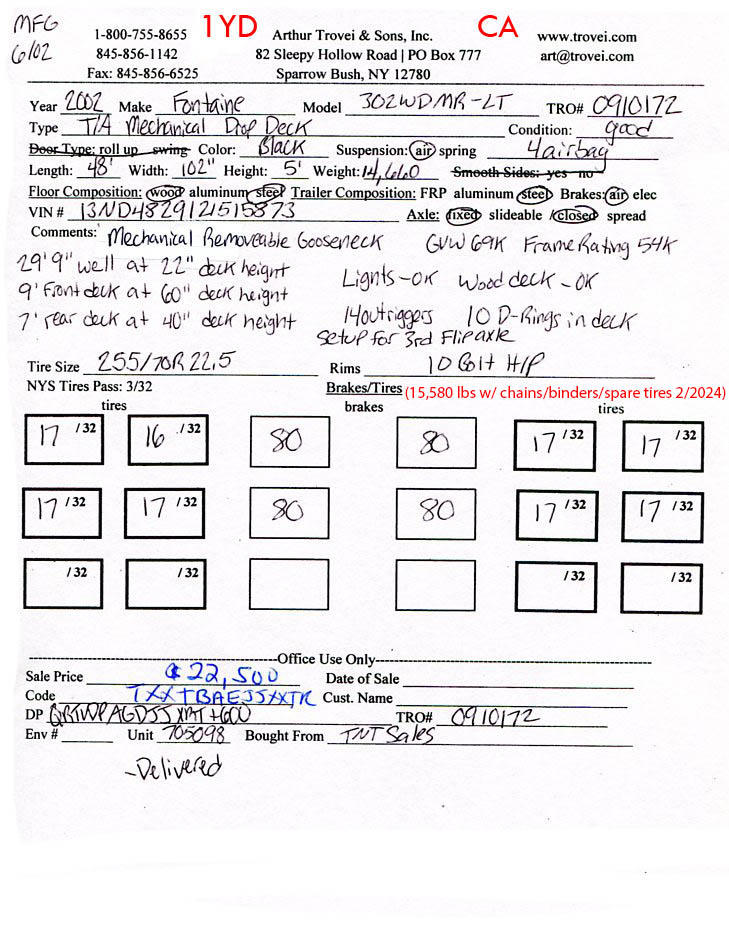 MFG
6/02
1-800-755-8655 1YD Arthur Trovei & Sons, Inc. CA www.trovei.com
845-856-1142 82 Sleepy Hollow Road | PO Box 777 art@trovei.com
Fax: 845-856-6525 Sparrow Bush, NY 12780
Year 2002 Make Fontaine Model 302WDMR-LT TRO# 0910172
Type T/A Mechanical Drop Deck Condition: good
Door Type: roll up swing Color: Black Suspension: air spring 4airbag
Length: 48' Width: 102" Height: 5' Weight: 14,660 Smooth Sides: yes no
Floor Composition: wood aluminum steel Trailer Composition: FRP aluminum steel Brakes: air elec
VIN # 13ND4829121515873 Axle: fixed slideable /closed spread
Comments: Mechanical Removeable Gooseneck GVW 69K Frame Rating 54K
29'9" well at 22" deck height Lights-OK Wood deck -OK
9' Front deck at 60" deck height
7' rear deck at 40" deck height 14outriggers 10 D-Rings in deck
setup for 3rd Flip axle
Tire Size 255/70R 22.5 Rims 10 Bolt H/P
NYS Tires Pass: 3/32 Brakes/Tires (15,580 lbs w/ chains/binders/spare tires 2/2024)
tires brakes tires
17 /32 16 /32 80 80 17 /32 17 /32
17 /32 17 /32 80 80 17 /32 17 /32
/32 /32 /32 /32
Office Use Only
Sale Price $22,500 Date of Sale
Code TXXTBAEJSXXTR Cust. Name
DP TRO# 0910172
Env # Unit 705098 Bought From TNT Sales
-Delivered